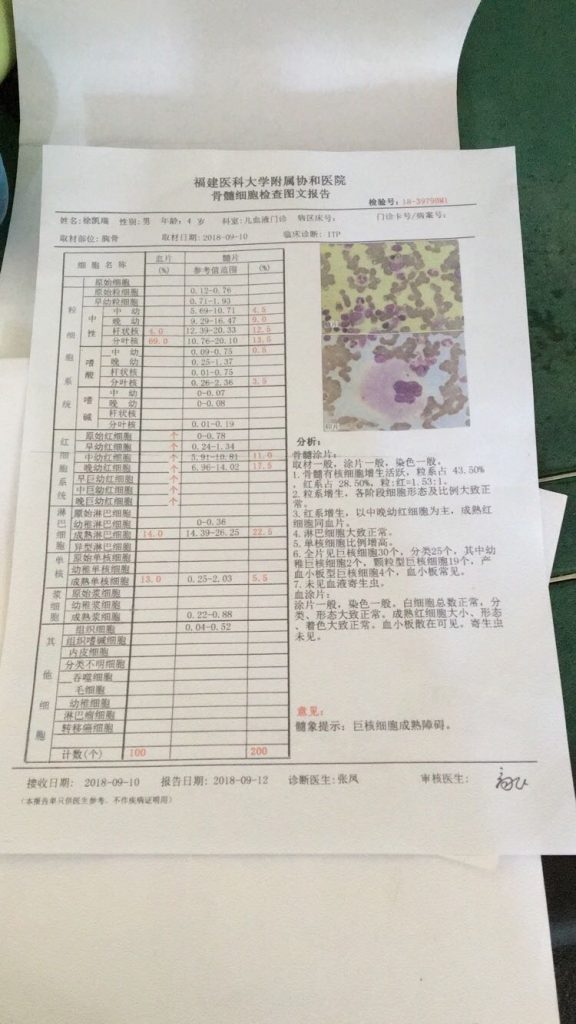 福建医科大学附属协和医院
骨髓细胞检查图文报告
检验号: 18-39799M1
姓名:徐凯瑞 性别:男 年龄:4 岁 科室:儿血液门诊 病区床号: 门诊卡号/病案号:
取材部位:胸骨 取材日期:2018-09-10 临床诊断: ITP
细胞名称 血片 (%) 髓片 参考值范围 (%)
粒细胞系统
原始细胞
原始粒细胞 0.12-0.76
早幼粒细胞 0.71-1.93
中性 中幼 5.69-10.71 4.5
晚幼 9.29-16.47 9.0
杆状核 4.0 12.39-20.33 12.5
分叶核 69.0 10.76-20.10 13.5
嗜酸 中幼 0.09-0.75 0.5
晚幼 0.25-1.37
杆状核 0.01-0.75
分叶核 0.26-2.36 3.5
嗜碱 中幼 0-0.07
晚幼 0-0.08
杆状核
分叶核 0.01-0.19
红细胞系统
原始红细胞 个 0-0.78
早幼红细胞 个 0.24-1.34
中幼红细胞 个 5.91-10.81 11.0
晚幼红细胞 个 6.96-14.02 17.5
早巨红细胞 个
中巨幼红细胞 个
晚巨幼红细胞 个
淋巴细胞
原始淋巴细胞
幼稚淋巴细胞 0-0.36
成熟淋巴细胞 14.0 14.39-26.25 22.5
异型淋巴细胞
单核
原始单核细胞
幼稚单核细胞
成熟单核细胞 13.0 0.25-2.03 5.5
浆细胞
原始浆细胞
幼稚浆细胞
成熟浆细胞 0.22-0.88
其他细胞
组织细胞 0.04-0.52
组织嗜碱细胞
内皮细胞
分类不明细胞
吞噬细胞
毛细胞
幼稚细胞
淋巴瘤细胞
转移癌细胞
计数(个) 100 200
分析:
骨髓涂片:
取材一般，涂片一般，染色一般。
1. 骨髓有核细胞增生活跃，粒系占 43.50%
，红系占 28.50%，粒:红=1.53:1。
2. 粒系增生，各阶段细胞形态及比例大致正
常。
3. 红系增生，以中晚幼红细胞为主，成熟红
细胞同血片。
4. 淋巴细胞大致正常。
5. 单核细胞比例增高。
6. 全片见巨核细胞30个，分类25个，其中幼
稚巨核细胞2个，颗粒型巨核细胞19个，产
血小板型巨核细胞4个，血小板常见。
7. 未见血液寄生虫。
血涂片:
涂片一般，染色一般。白细胞总数正常，分
类、形态大致正常。成熟红细胞大小、形态
、着色大致正常。血小板散在可见。寄生虫
未见。
意见:
髓象提示: 巨核细胞成熟障碍。
接收日期: 2018-09-10 报告日期: 2018-09-12 诊断医生:张凤 审核医生:
(本报告单只供医生参考，不作疾病证明用)